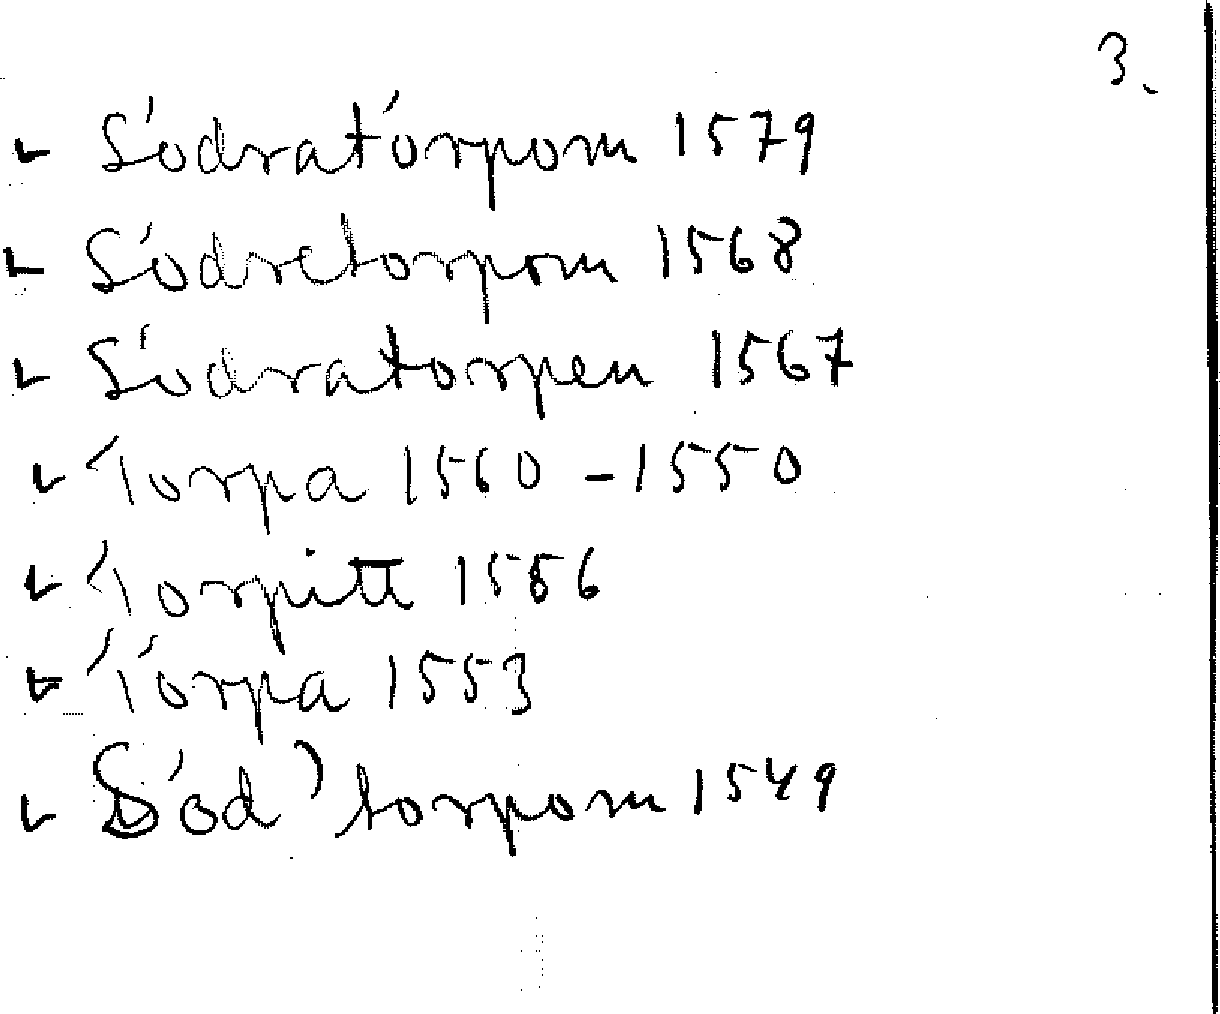 3.
Södratórpom 1579
Södretorpom 1568
Södratorpen 1567
Torpa 1560 - 1550
Torpitt 1556
Tórpa 1553
Söd' torpom 1549